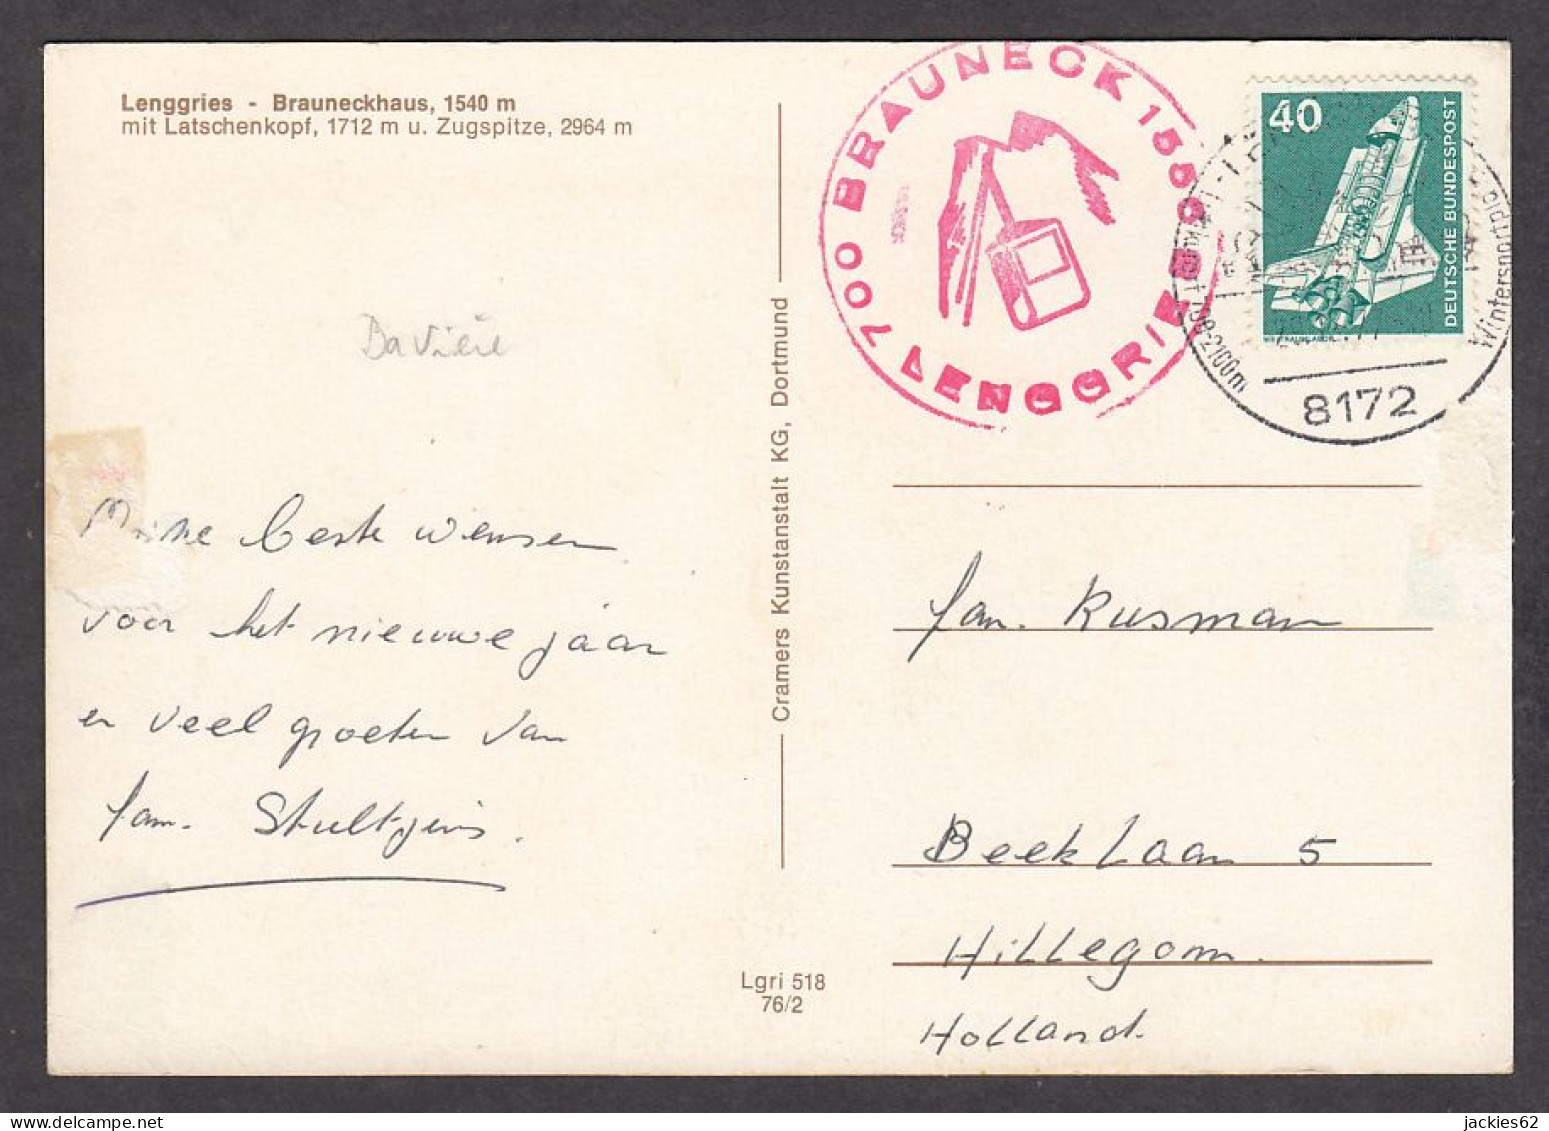 Lenggries - Brauneckhaus, 1540 m
mit Latschenkopf, 1712 m u. Zugspitze, 2964 m
BRAUNECK 1550
700 LENGGRIES
40
DEUTSCHE BUNDESPOST
700-2100m
Wintersport
8172
Bavière
beste wensen
voor het nieuwe jaar
en veel groeten van
fam.
Cramers Kunstanstalt KG, Dortmund
Lgri 518
76/2
fam. Kusman
Beeklaan 5
Hillegom.
Holland.
jackies62